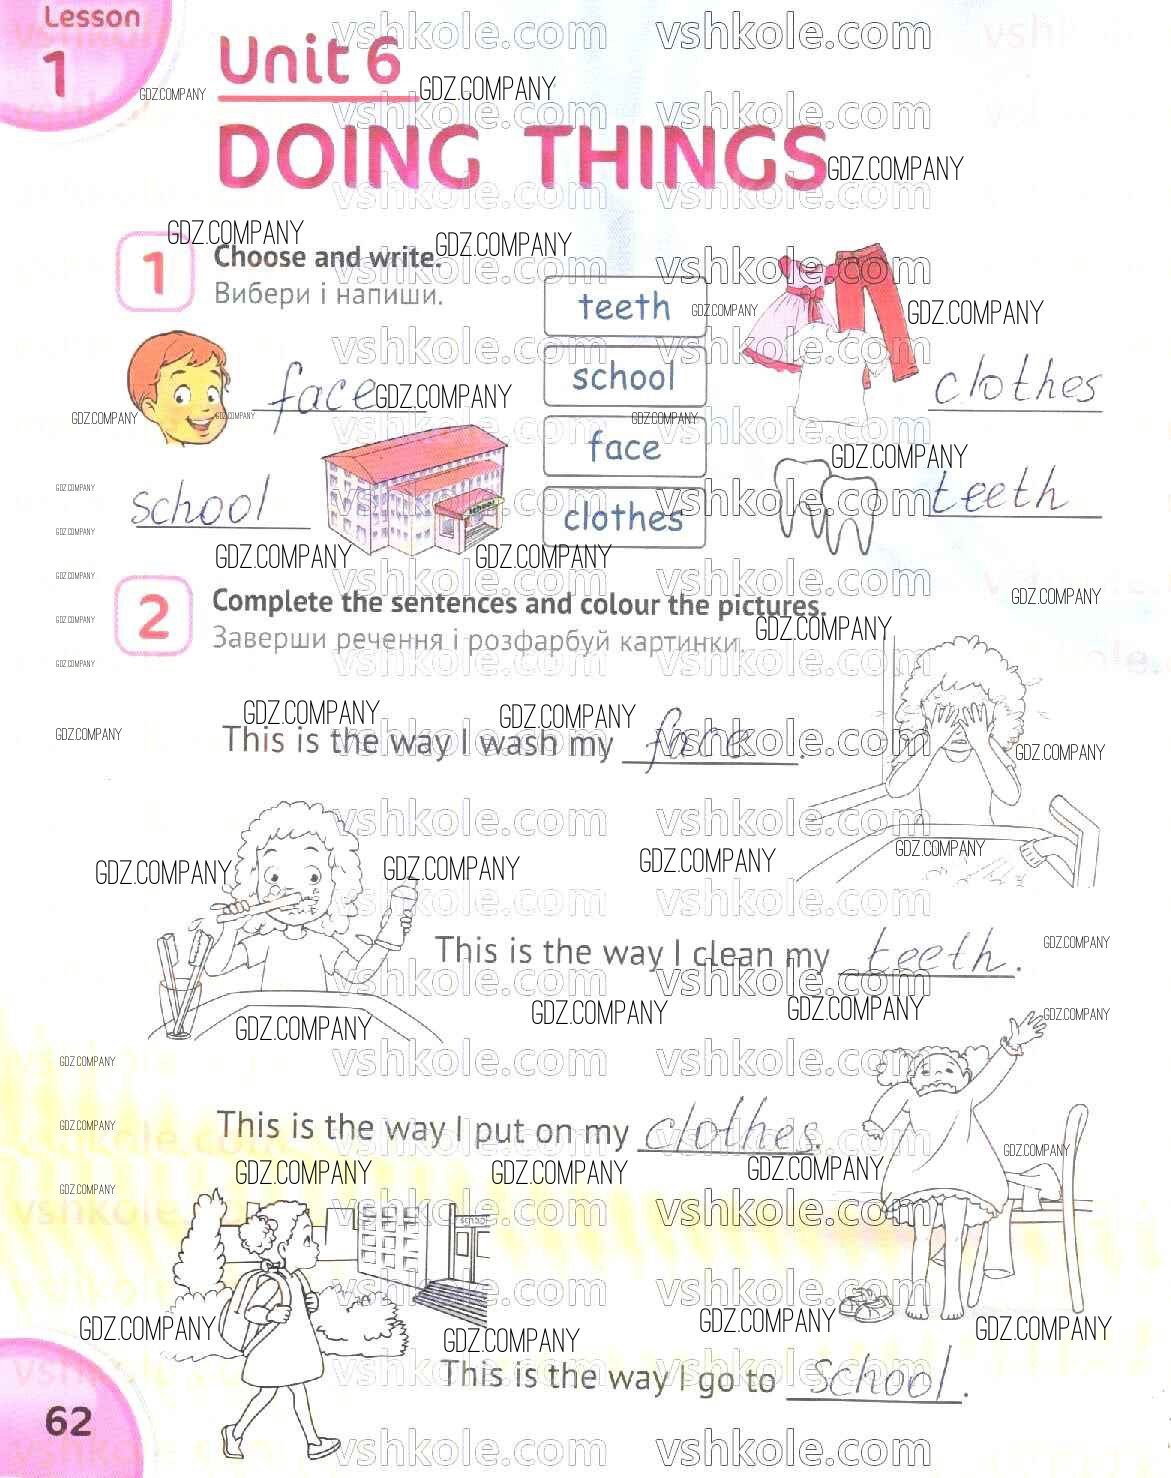 Lesson
1
Unit 6
DOING THINGS
1
Choose and write.
Вибери і напиши.
teeth
school
face
clothes
face
clothes
school
teeth
2
Complete the sentences and colour the pictures.
Заверши речення і розфарбуй картинки.
This is the way I wash my face.
This is the way I clean my teeth.
This is the way I put on my clothes.
SCHOOL
This is the way I go to school.
62
vshkole.com
GDZ.COMPANY